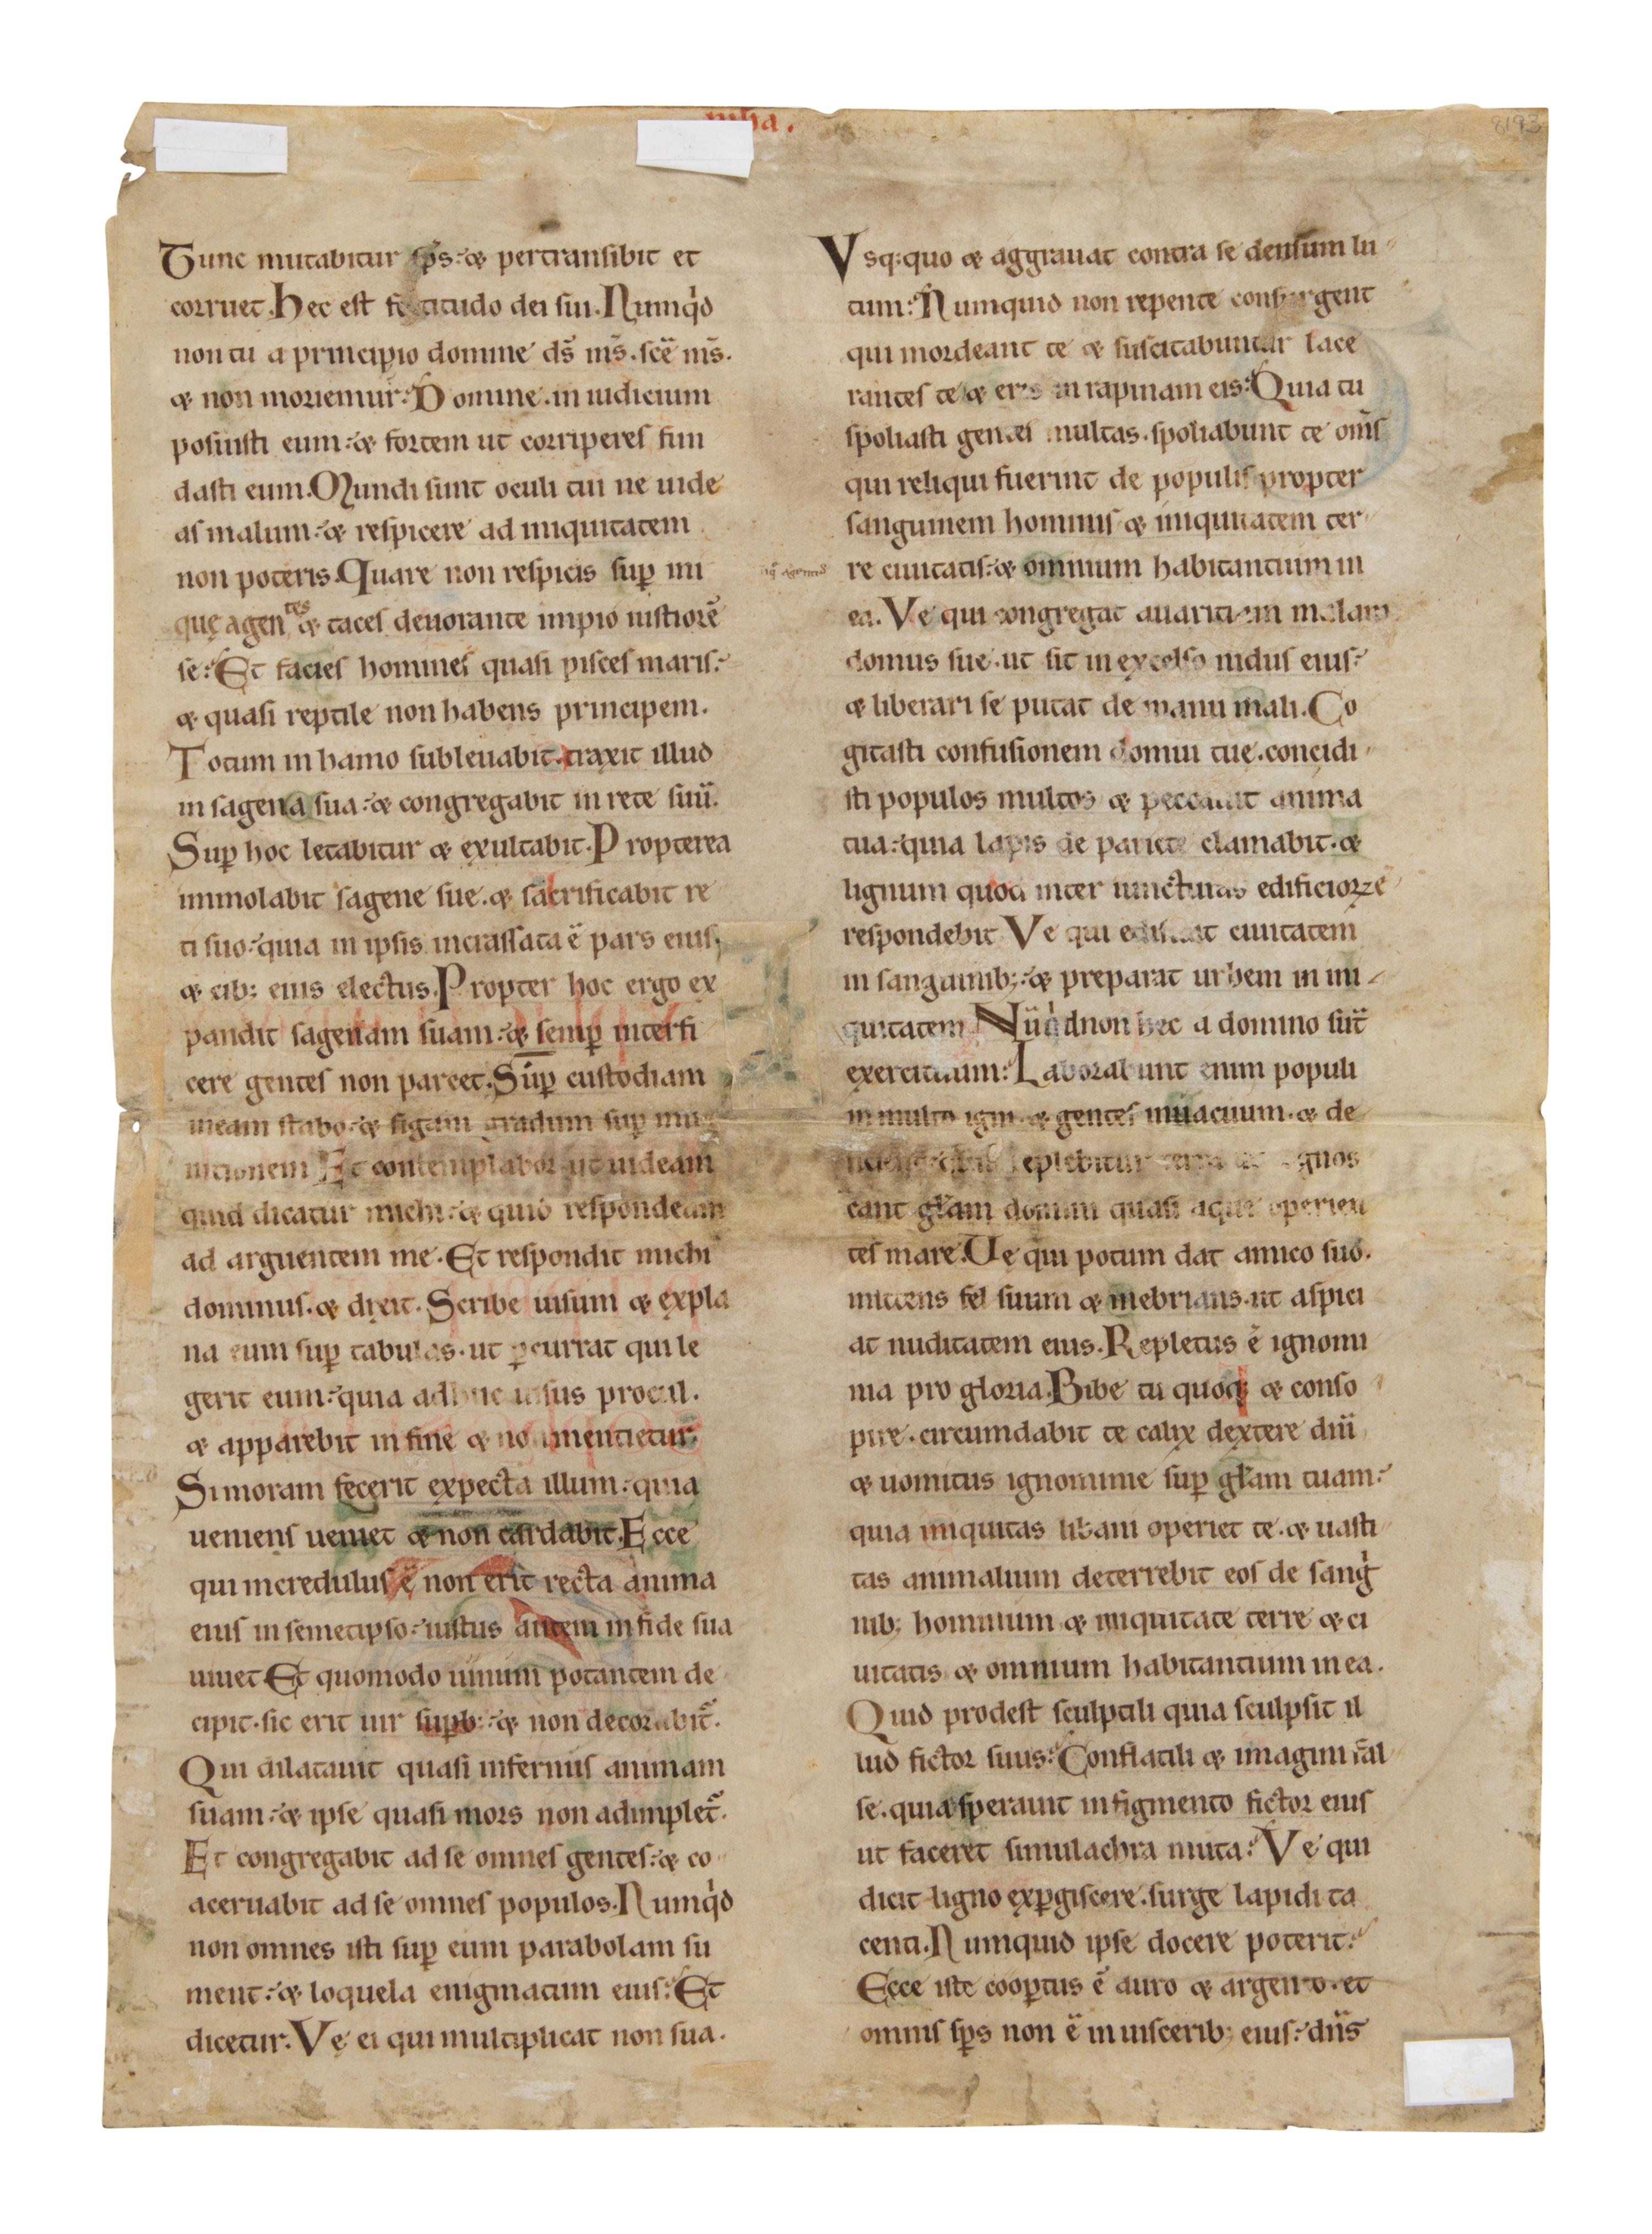 8193
Tunc mutabitur sp̄s: & pertransibit et
corruet. Hec est fortitudo dei sui. Numqͥd
non tu a principio domine ds̄ ms̄. scē ms̄.
& non moriemur: Domine. in iudicium
posuisti eum: & fortem ut corriperes fun
dasti eum. Mundi sunt oculi tui ne uide
as malum: & respicere ad iniquitatem
non poteris. Quare non respicis suꝑ ini
quę agentes & taces deuorante impio iustiorē
se: Et facies homines quasi pisces maris:
& quasi reptile non habens principem.
Totum in hamo subleuabit. traxit illud
in sagena sua: & congregabit in rete suū.
Suꝑ hoc letabitur & exultabit. Propterea
immolabit sagene sue. & sacrificabit re
ti suo: quia in ipsis incrassata ē pars eius.
& cib; eius electus. Propter hoc ergo ex
pandit sagenam suam: & semꝑ interfi
cere gentes non parcet. Suꝑ custodiam
meam stabo: & figam gradum suꝑ mu
nitionem Et contemplabor ut uideam
quid dicatur michi: & quid respondeam
ad arguentem me. Et respondit michi
dominus. & dixit. Scribe uisum & expla
na eum suꝑ tabulas. ut ꝑcurrat qui le
gerit eum: quia adhuc uisus procul.
& apparebit in fine & non mentietur.
Si moram fecerit expecta illum: quia
ueniens ueniet & non tardabit. Ecce
qui incredulus ē non erit recta anima
eius in semetipso: iustus autem in fide sua
uiuet Et quomodo uinum potantem de
cipit. sic erit uir suꝑb;: & non decorabit̄.
Qui dilatauit quasi infernus animam
suam: & ipse quasi mors non adimplet̄.
Et congregabit ad se omnes gentes: & co
aceruabit ad se omnes populos. Numqͥd
non omnes isti suꝑ eum parabolam su
ment: & loquela enigmatum eius: Et
dicetur. Vę ei qui multiplicat non sua.
Vsq; quo & aggrauat contra se densum lu
tum: Numquid non repente consurgent
qui mordeant te & suscitabuntur lace
rantes te & eris in rapinam eis: Quia tu
spoliasti gentes multas. spoliabunt te om̄s
qui reliqui fuerint de populis propter
sanguinem hominis & iniquitatem ter
re ciuitatis: & omnium habitantium in
ea. Ve qui congregat auaritiam malam
domus sue. ut sit in excelso nidus eius:
& liberari se putat de manu mali. Co
gitasti confusionem domui tuę. concidi
sti populos multos & peccauit anima
tua: quia lapis de pariete clamabit. &
lignum quod inter iuncturas edificioꝝ ē
respondebit Ve qui edificat ciuitatem
in sanguinib;: & preparat urbem in ini
quitatem Nūqͥd non hec a domino sūt
exercituum: Laborabunt enim populi
in multo igni. & gentes in uacuum. & de
eplebitur gnos
cant gl̄am domini quasi aque operien
tes mare. Ve qui potum dat amico suo.
mittens fel suum & inebrians. ut aspici
at nuditatem eius. Repletus ē ignomi
nia pro gloria. Bibe tu quoq; & conso
pire. circumdabit te calix dextere dn̄i
& uomitus ignominie suꝑ gl̄am tuam:
quia iniquitas libani operiet te. & uasti
tas animalium deterrebit eos de sangͥ
nib; hominum & iniquitate terre & ci
uitatis & omnium habitantium in ea.
Quid prodest sculptili quia sculpsit il
lud fictor suus: Conflatili & imagini fal
se. quia sperauit in figmento fictor eius
ut faceret simulachra muta: Ve qui
dicit ligno exꝑgiscere. surge lapidi ta
centi. Numquid ipse docere poterit:
Ecce iste cooꝑtus ē auro & argento. et
omnis sp̄s non ē in uiscerib; eius: dn̄s